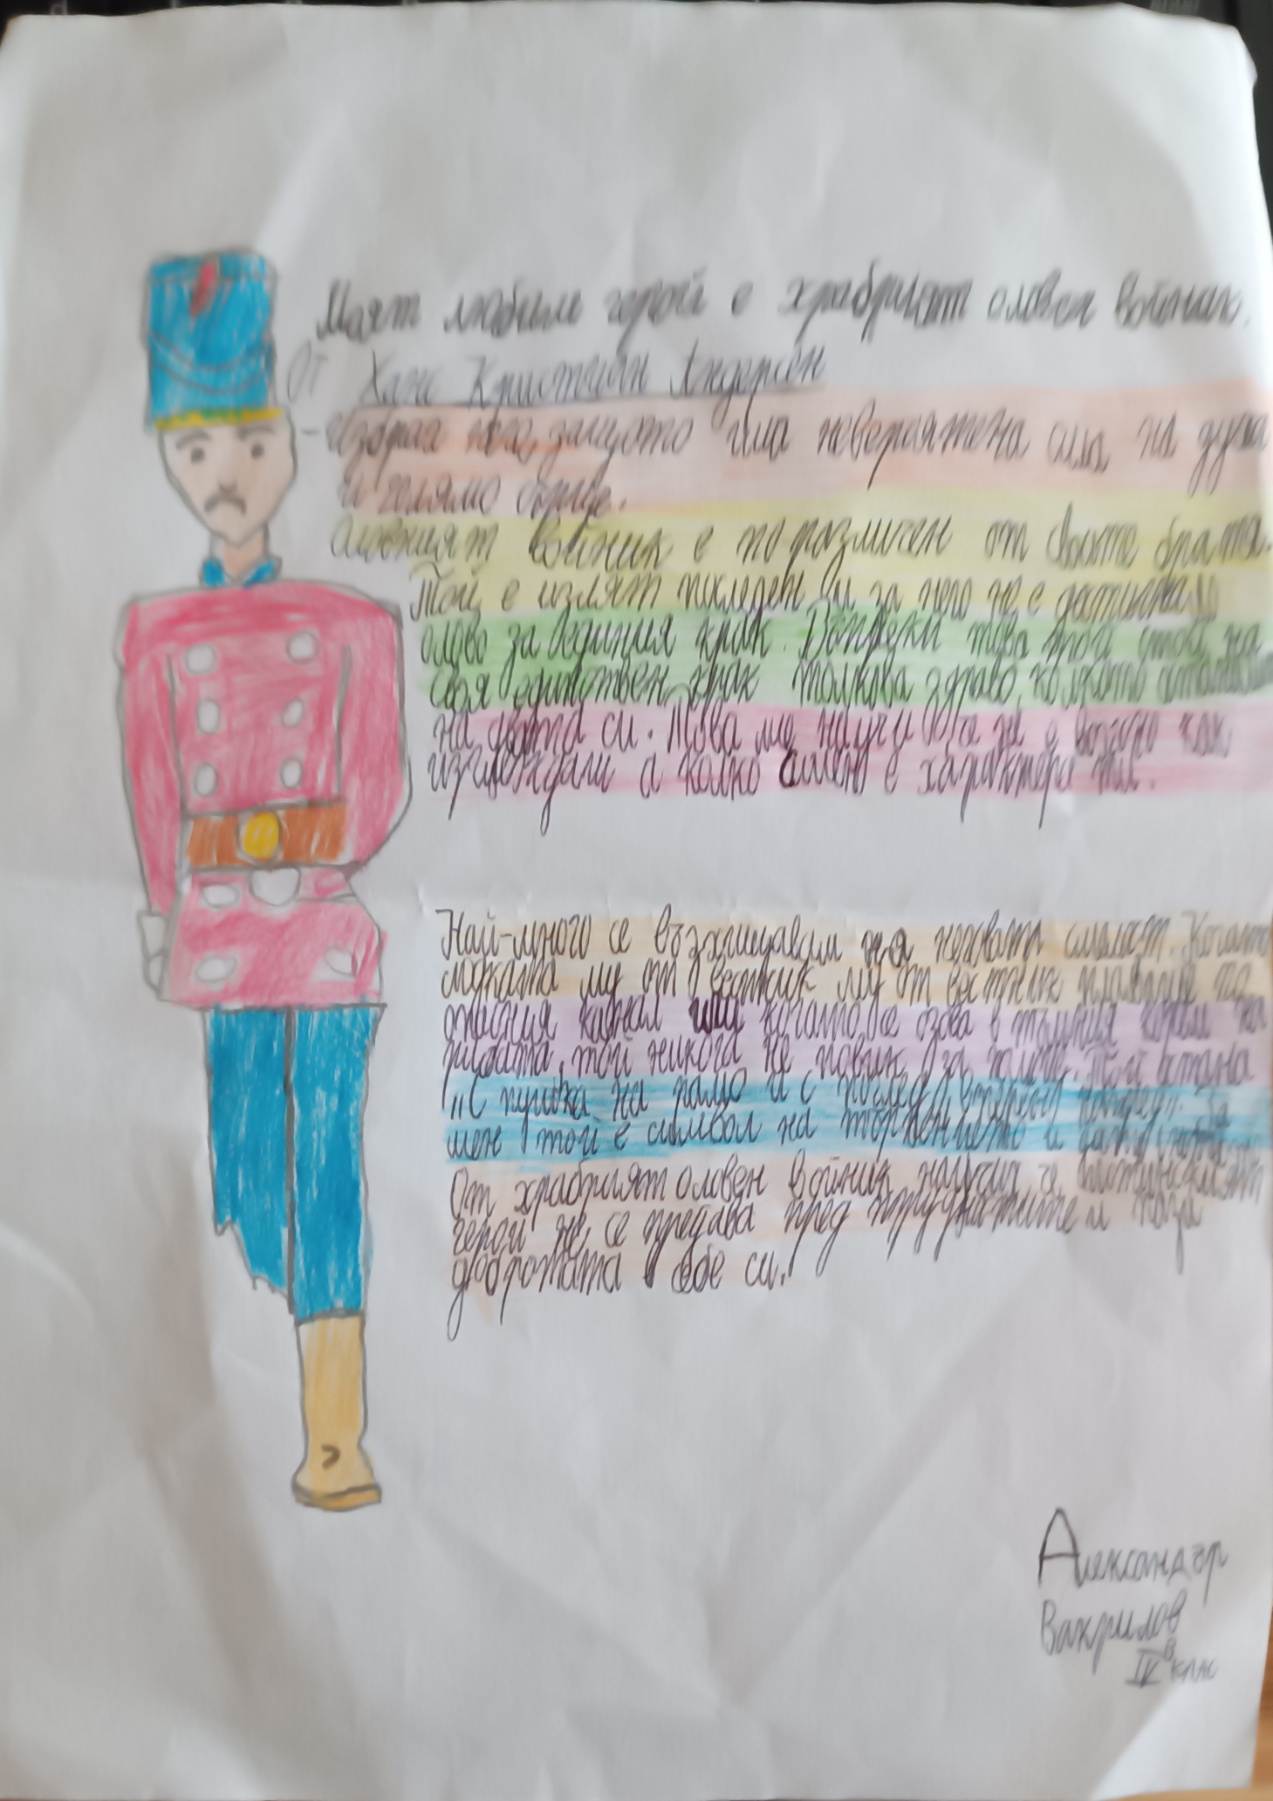 Моят любим герой е храбрият оловен войник.
От Ханс Кристиян Андерсен
-Избрах него, защото има невероятена сила на духа
и голямо сърце.
Оловният войник е по различен от своите братя.
Той е излят последен и за него не е достигнало
олово за единия крак. Въпреки това той стои на
своя единствен крак толкова здраво, колкото останалите
на двата си. Това ме научи че не е важно как
изглеждаш а колко силен е характера ти.
Най-много се възхищавам на неговата смелост. Когато
лодката му от вестник му от вестник плаваше по
опасния канал или когато се озова в тъмния корем на
рибата, той никога не повика за помощ. Той остана
"С пушка на рамо и с поглед вперен напред". За
мен той е символ на търпението и
От храбрият оловен войник научих че истинският
герой не се предава пред трудностите и пази
добротата в себе си.
Александър
Вакрилов
IV в клас